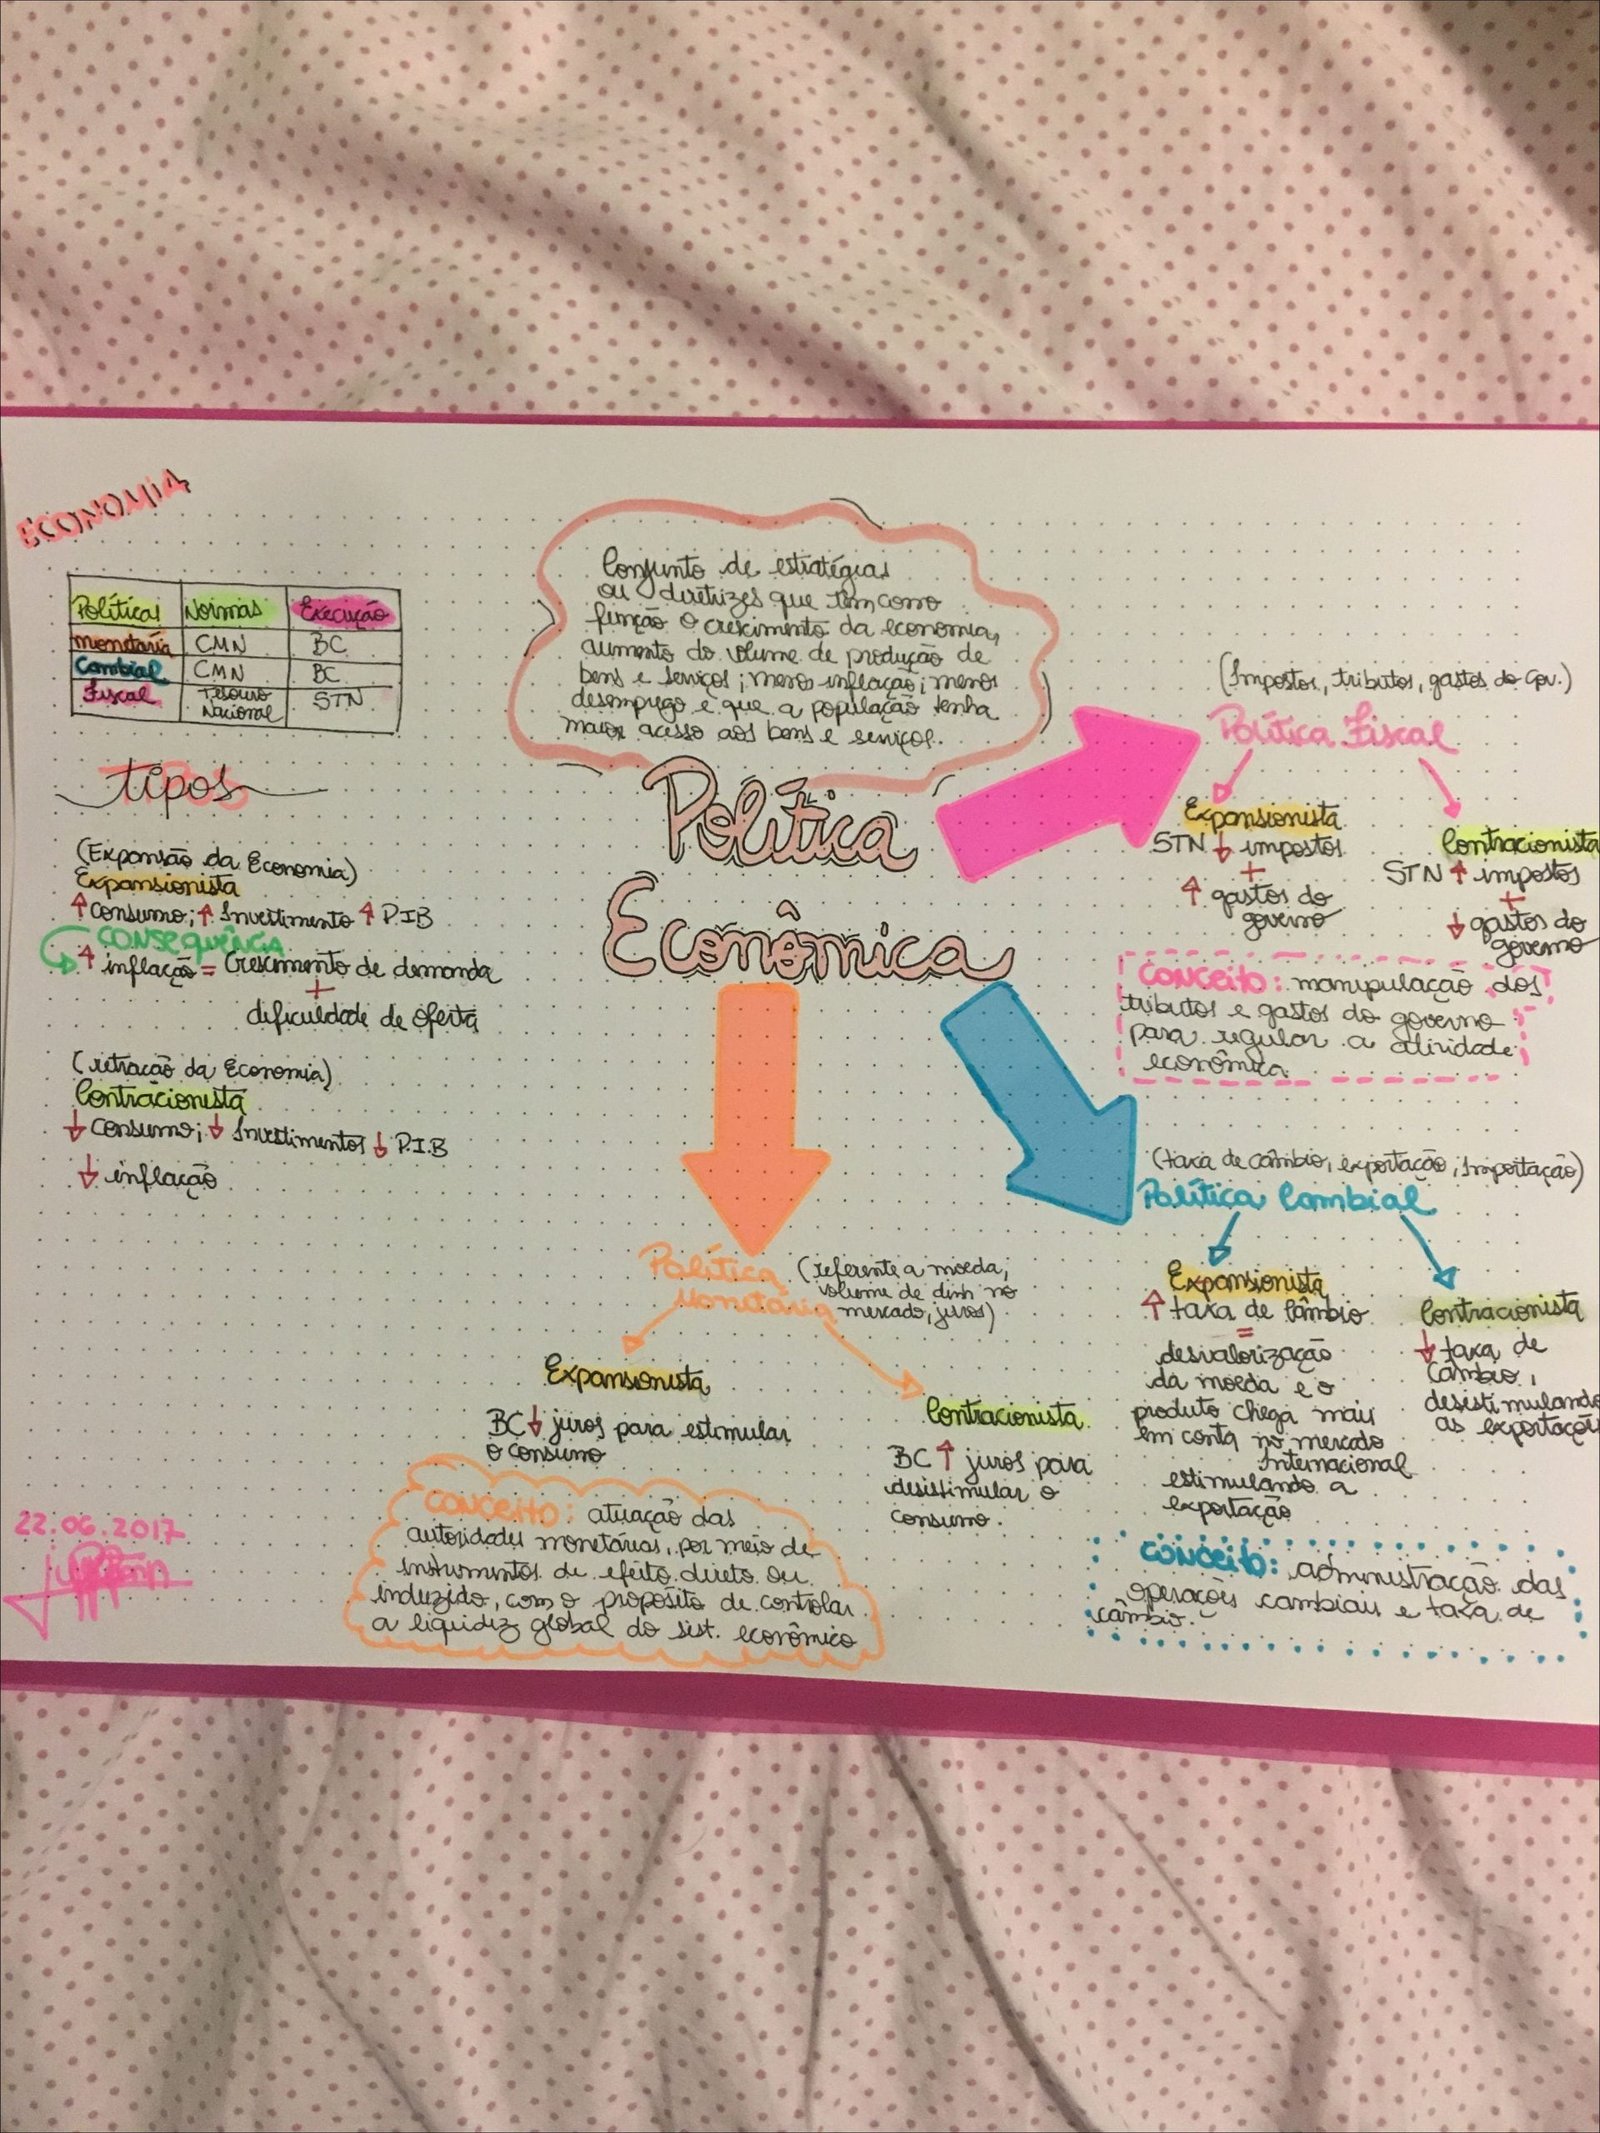 ECONOMIA
Políticas Normas Execução
monetária CMN BC
Cambial CMN BC
Fiscal Tesouro Nacional STN
tipos
(Expansão da Economia)
Expansionista
↑ consumo; ↑ Investimento ↑ P.I.B
CONSEQUÊNCIA
↑ inflação = Crescimento de demanda
+
dificuldade de oferta
(retração da Economia)
Contracionista
↓ consumo; ↓ Investimentos ↓ P.I.B
↓ inflação
22.06.2017
Conjunto de estratégias
ou diretrizes que têm como
função o crescimento da economia,
aumento do volume de produção de
bens e serviços; menos inflação; menos
desemprego e que a população tenha
maior acesso aos bens e serviços.
Política
Econômica
(Impostos, tributos, gastos do Gov.)
Política Fiscal
Expansionista
STN ↓ impostos
+
↑ gastos do
governo
Contracionista
STN ↑ impostos
+
↓ gastos do
governo
CONCEITO: manipulação dos
tributos e gastos do governo
para regular a atividade
econômica
(taxa de câmbio, exportação, Importação)
Política Cambial
Expansionista
↑ taxa de Câmbio
=
desvalorização
da moeda e o
produto chega mais
em conta no mercado
Internacional
estimulando a
exportação
Contracionista
↓ taxa de
Câmbio,
desestimulando
as exportações
CONCEITO: administração das
operações cambiais e taxa de
câmbio.
Política
Monetária
(referente a moeda,
volume de dinh no
mercado, juros)
Expansionista
BC ↓ juros para estimular
o consumo
Contracionista
BC ↑ juros para
desistimular o
consumo.
CONCEITO: atuação das
autoridades monetárias, por meio de
instrumentos de efeito direto ou
induzido, com o propósito de controlar
a liquidez global do sist. econômico